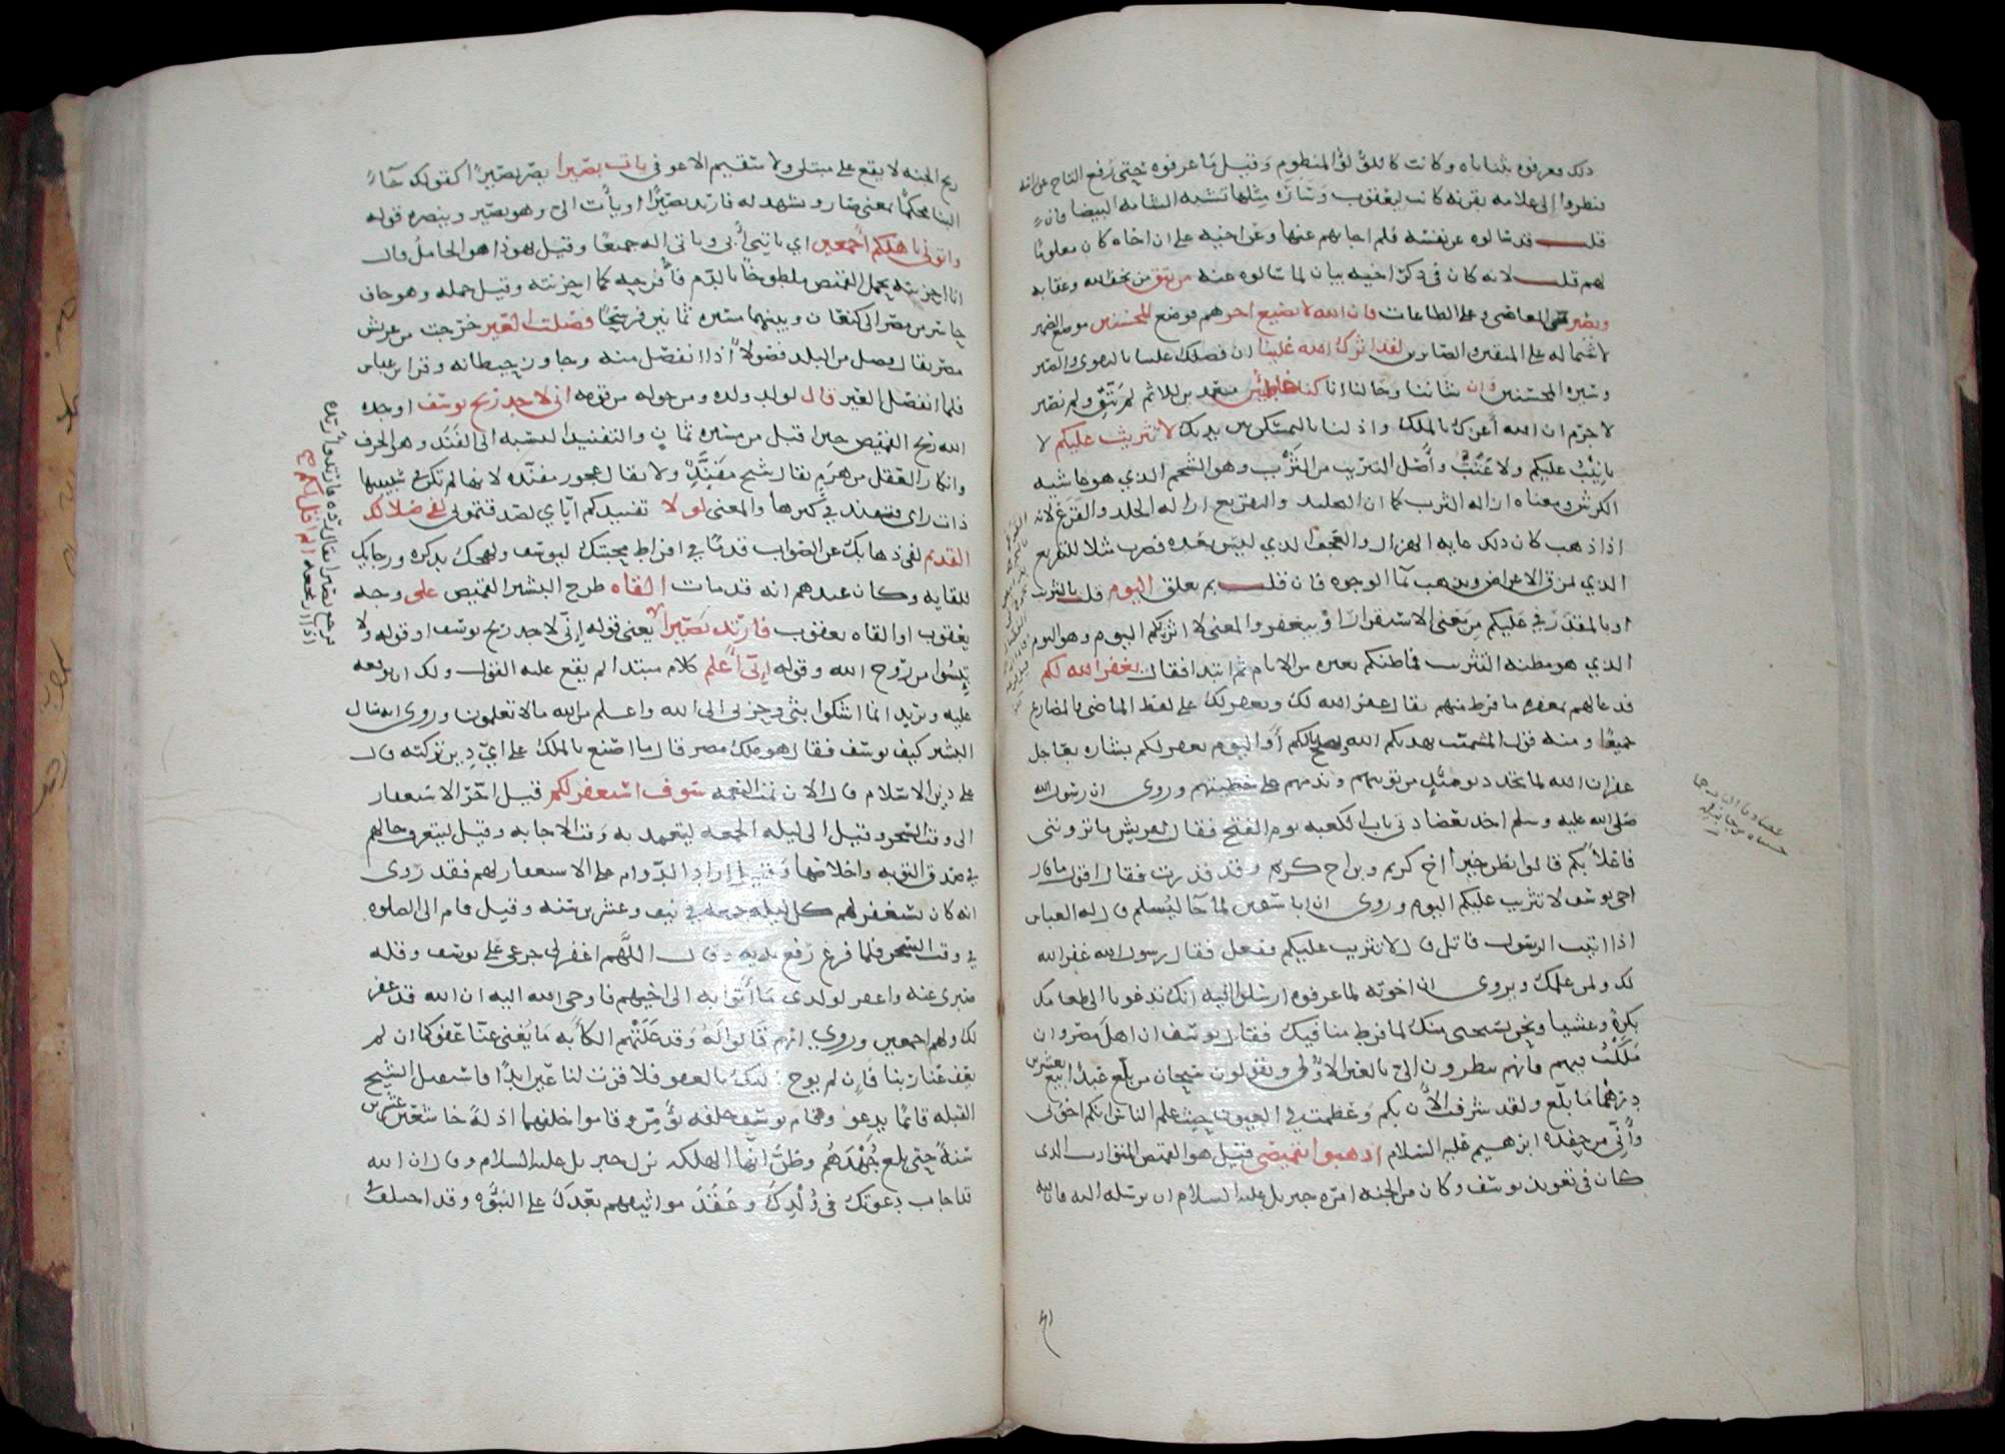 ذلك فعرفوه بثناياه وكانت كاللؤلؤ المنظوم وقيل ما عرفوه حتى رفع التاج عن راسه
فنظروا الى علامة بقرنه كانت ليعقوب وسارة مثلها تشبه الشامة البيضا فان
قلت قد سالوه عن نفسه فلم اجابهم عنها وعن اخيه على ان اخاه كان معلوما
لهم قلت لانه كان في ذكر اخيه بيان لما سالوه عنه من يتق من يخف الله وعقابه
ويصبر عن المعاصي وعلى الطاعات فان الله لا يضيع اجرهم فوضع المحسنين موضع الضمير
لاشتماله على المتقين والصابرين لقد اثرك الله علينا اي فضلك علينا بالتقوى والصبر
وسيرة المحسنين وان شاننا وحالنا انا كنا خاطئين متعمدين للاثم لم نتق ولم نصبر
لا جرم ان الله اعزك بالملك واذلنا بالتمسكن بين يديك لا تثريب عليكم لا
تانيب عليكم ولا عتب واصل التثريب من الثرب وهو الشحم الذي هو غاشية
الكرش ومعناه ازالة الثرب كما ان التجليد والتقريع ازالة الجلد والقرع لانه
اذا ذهب كان ذلك غاية الهزال والعجف الذي ليس بعده فضرب مثلا للتقريع
الذي يمزق الاعراض ويذهب بما الوجوه فان قلت بم تعلق اليوم قلت بالتثريب
او بالمقدر في عليكم من معنى الاستقرار او بيغفر والمعنى لا اثربكم اليوم وهو اليوم
الذي هو مظنة التثريب فما ظنكم بغيره من الايام ثم ابتدا فقال يغفر الله لكم
فدعا لهم بمغفرة ما فرط منهم يقال غفر الله لك ويغفر لك على لفظ الماضي والمضارع
جميعا ومنه قول المشمت يهديكم الله ويصلح بالكم او اليوم يغفر لكم بشارة بعاجل
غفران الله لما تجدد يومئذ من توبتهم وندمهم على خطيئتهم وروى ان رسول الله
صلى الله عليه وسلم اخذ بعضادتي باب الكعبة يوم الفتح فقال لقريش ما ترونني
فاعلا بكم قالوا نظن خيرا اخ كريم وابن اخ كريم وقد قدرت فقال اقول ما قال
اخي يوسف لا تثريب عليكم اليوم وروى ان ابا سفين لما جا ليسلم قال له العباس
اذا اتيت الرسول فاتل قال لا تثريب عليكم ففعل فقال رسول الله غفر الله
لك ولمن علمك ويروى ان اخوته لما عرفوه ارسلوا اليه انك تدعونا الى طعامك
بكرة وعشيا ونحن نستحي منك لما فرط منا فيك فقال يوسف ان اهل مصر وان
ملكت فيهم فانهم ينظرون الي بالعين الاولى ويقولون سبحان من بلغ عبدا بيع بعشرين
درهما ما بلغ ولقد شرفت الان بكم وعظمت في العيون حيث علم الناس انكم اخوتي
واني من حفدة ابرهيم عليه السلام اذهبوا بقميصي قيل هو القميص المتوارث الذي
كان في تعويذ يوسف وكان من الجنة امره جبريل عليه السلام ان يرسله اليه فان فيه
ريح الجنة لا يقع على مبتلى ولا سقيم الا عوفي يات بصيرا يصر بصيرا كقولك جاء
البنا محكما بمعنى صار ويشهد له فارتد بصيرا او يات الي وهو بصير وينصره قوله
واتوني باهلكم اجمعين اي ياتيني ابي وياتي اله جميعا وقيل يهوذا هو الحامل قال
انا احزنته بحمل القميص ملطوخا بالدم فافرحه كما احزنته وقيل حمله وهو حاف
حاسر من مصر الى كنعان وبينهما مسيرة ثمانين فرسخا فصلت العير خرجت من عريش
مصر يقال فصل من البلد فصولا اذا انفصل منه وجاوز حيطانه وقرا ابن عباس
فلما انفصل العير قال لولد ولده ومن حوله من قومه اني لاجد ريح يوسف اوجده
الله ريح القميص حين اقبل من مسيرة ثمان والتفنيد النسبة الى الفند وهو الخرف
وانكار العقل من هرم يقال شيخ مفند ولا يقال عجوز مفندة لانها لم تكن في شبيبتها
ذات راي فتفند في كبرها والمعنى لولا تفنيدكم اياي لصدقتموني لفي ضلالك
القديم لفي ذهابك عن الصواب قدما في افراط محبتك ليوسف ولهجك بذكره ورجايك
للقايه وكان عندهم انه قد مات القاه طرح البشير القميص على وجه
يعقوب او القاه يعقوب فارتد بصيرا يعني قوله اني لاجد ريح يوسف او قوله ولا
تيئسوا من روح الله وقوله اني اعلم كلام مبتدا لم يقع عليه القول ولك ان توقعه
عليه وتريد انما اشكوا بثي وحزني الى الله واعلم من الله ما لا تعلمون وروى انه سال
البشير كيف يوسف فقال هو ملك مصر قال ما اصنع بالملك على اي دين تركته قال
على دين الاسلام قال الان تمت النعمة سوف استغفر لكم قيل اخر الاستغفار
الى وقت السحر وقيل الى ليلة الجمعة ليتعمد به وقت الاجابة وقيل ليتعرف حالهم
في صدق التوبة واخلاصها وقيل اراد الدوام على الاستغفار لهم فقد روى
انه كان يستغفر لهم كل ليلة جمعة في نيف وعشرين سنة وقيل قام الى الصلوة
في وقت السحر فلما فرغ رفع يديه وقال اللهم اغفر لي جزعي على يوسف وقلة
صبري عنه واغفر لولدي ما اتوا به الى اخيهم فاوحى الله اليه ان الله قد غفر
لك ولهم اجمعين وروي انهم قالوا له وقد علتهم الكابة ما يغني عنا عفوكما ان لم
يعف عنا ربنا فان لم يوح اليك بالعفو فلا قرت لنا عين ابدا فاستقبل الشيخ
القبلة قائما يدعو وقام يوسف خلفه يؤمن وقاموا خلفهما اذلة خاشعين عشرين
سنة حتى بلغ جهدهم وظنوا انها الهلكة نزل جبريل عليه السلام وقال ان الله
قد اجاب دعوتك في ولدك وعقد مواثيقهم بعدك على النبوة وقد اختلف